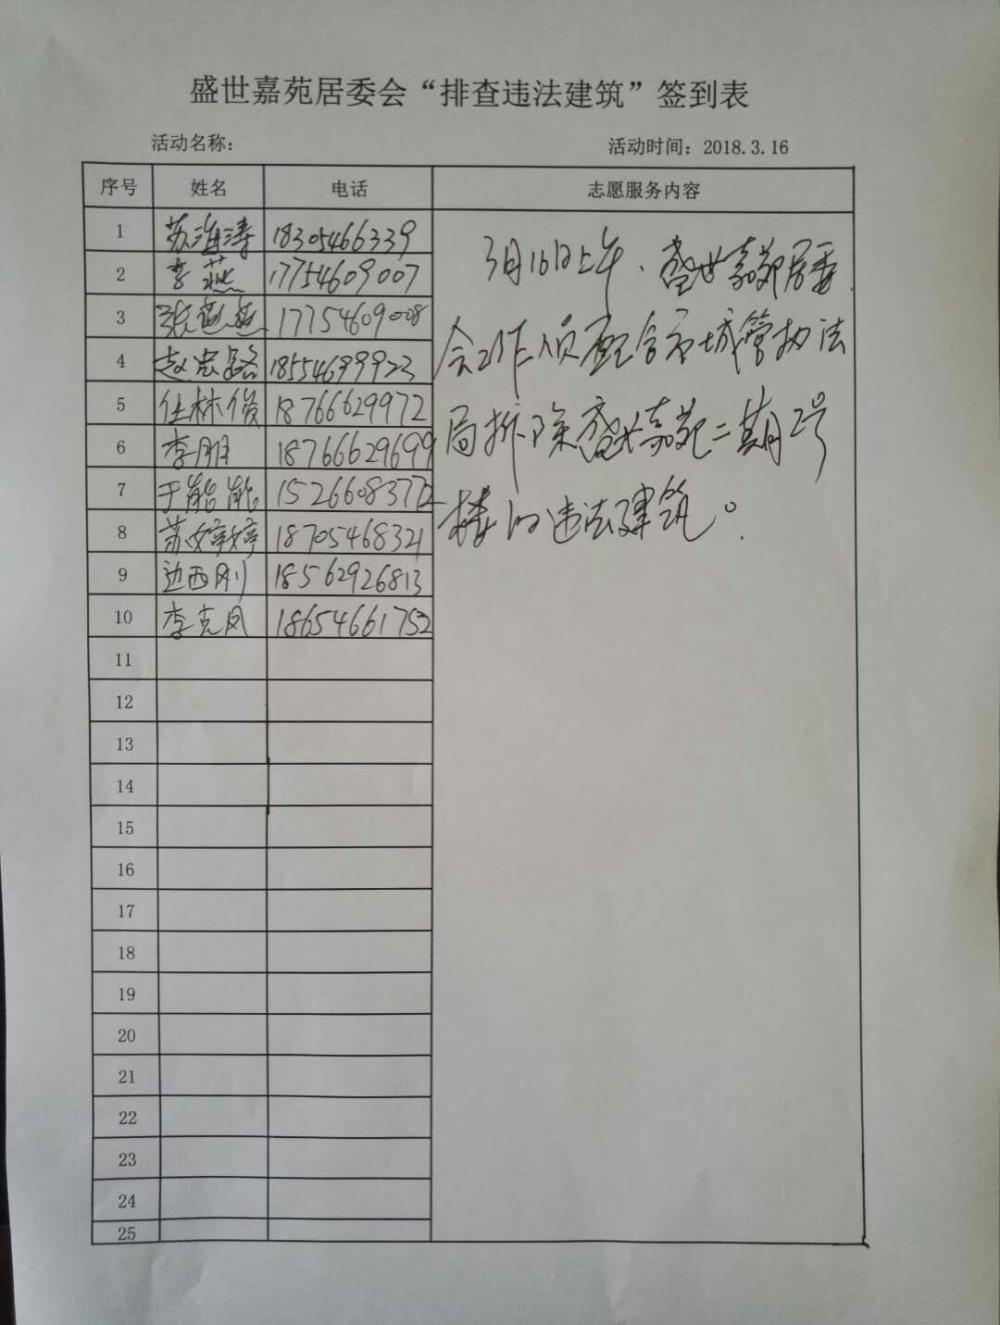 盛世嘉苑居委会“排查违法建筑”签到表
活动名称：
活动时间：2018.3.16
序号 姓名 电话 志愿服务内容
1 苏海涛 18305466339
2 李燕 17754609007
3 张燕燕 17754609008
4 赵忠路 18554699923
5 任林俊 18766629972
6 李朋 18766629699
7 于能能 1526608377
8 苏婷婷 18705468321
9 边西刚 18562926813
10 李克凤 18654661752
11
12
13
14
15
16
17
18
19
20
21
22
23
24
25
3月16日上午、盛世嘉苑居委
会工作人员配合市城管执法
局拆除盛世嘉苑二期2号
楼的违法建筑。